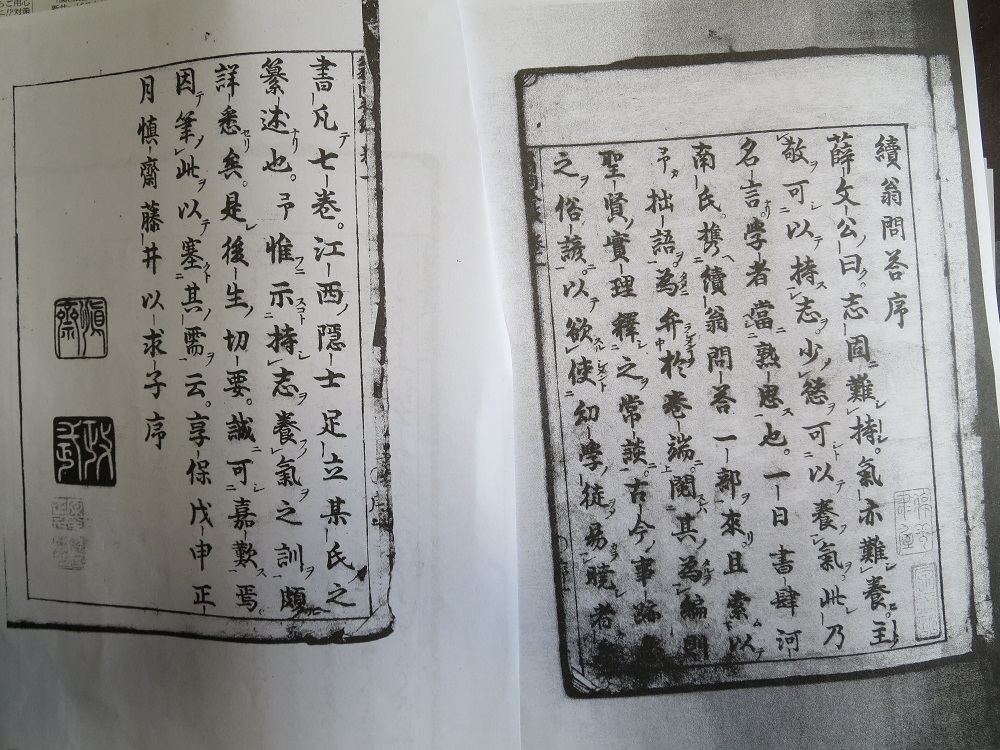 續翁問答序
薛文公曰。志固難持。氣亦難養。主
敬可以持志。少慾可以養氣。此乃
名言。學者當熟思也。一日書肆河
南氏。携續翁問答一部來。且索以
予拙語。為弁於巻端。閲其為編。則
聖賢實理釋之常談。古今事跡
之俗諺。以欲使幼學徒易曉者
書。凡七巻。江西隱士足立某氏之
纂述也。予惟示持志養氣之訓。頗
詳悉矣。是後生切要。誠可嘉歎焉。
因筆此以塞其需云。享保戊申正
月慎齋藤井以求子序
慎齋